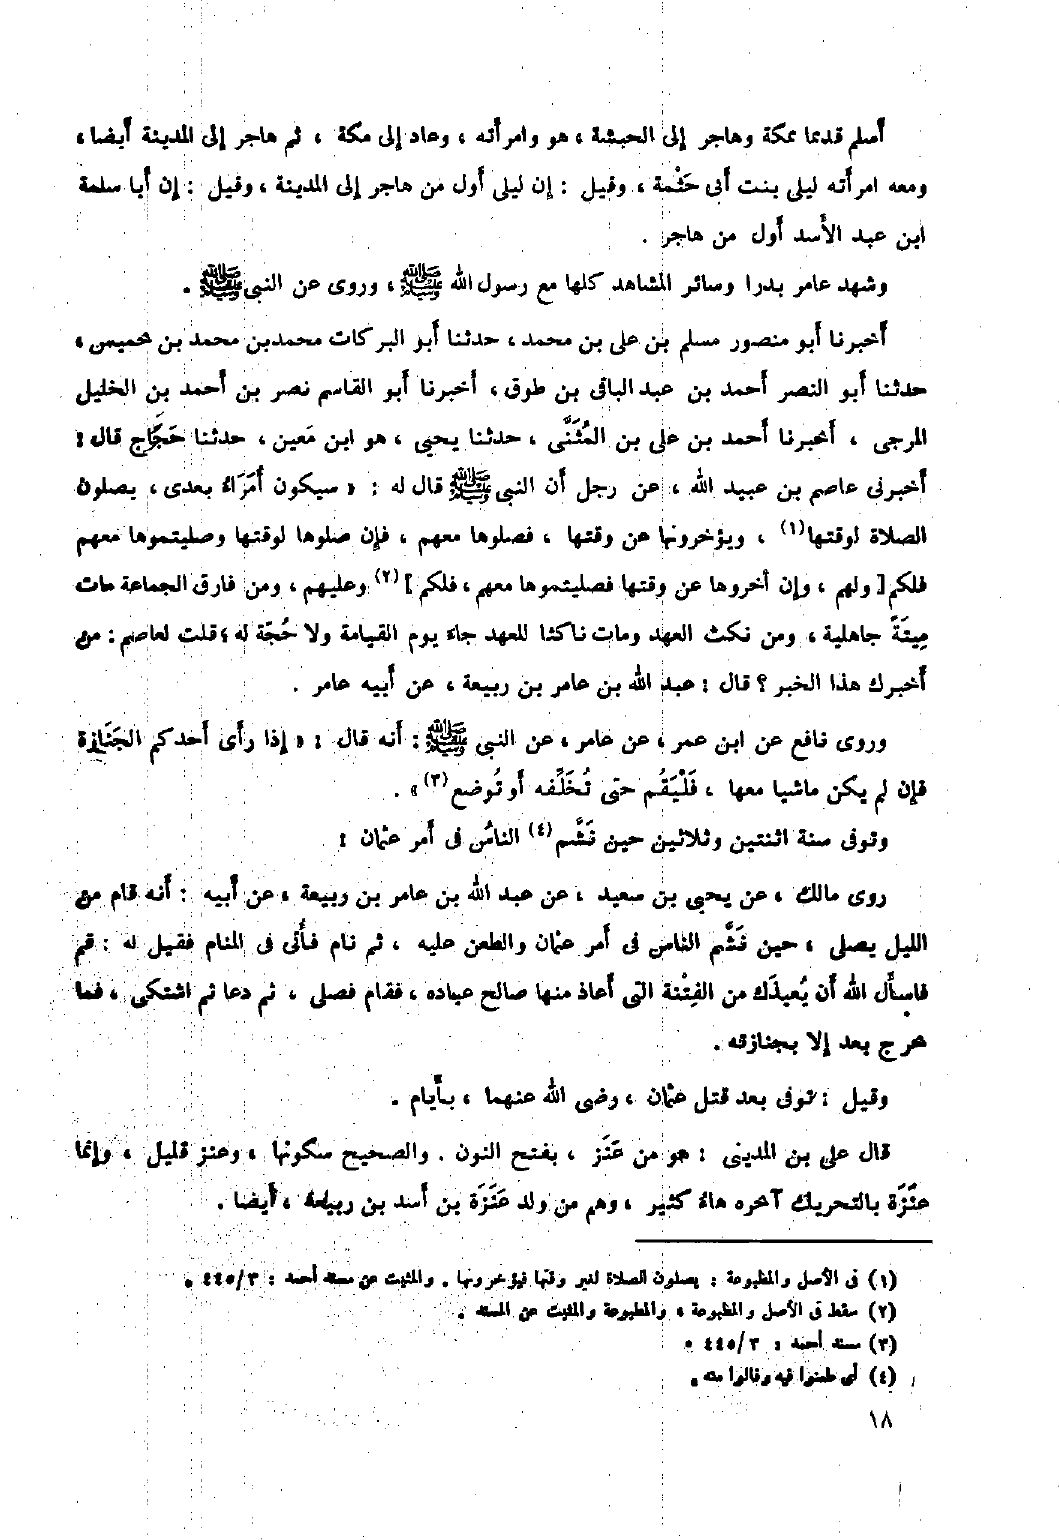 أسلم قديما بمكة وهاجر إلى الحبشة ، هو وامرأته ، وعاد إلى مكة ، ثم هاجر إلى المدينة أيضا ،
ومعه امرأته ليلى بنت أبى حَثْمة ، وقيل : إن ليلى أول من هاجر إلى المدينة ، وقيل : إن أبا سلمة
ابن عبد الأسد أول من هاجر .
وشهد عامر بدرا وسائر المشاهد كلها مع رسول الله ﷺ ، وروى عن النبى ﷺ .
أخبرنا أبو منصور مسلم بن على بن محمد ، حدثنا أبو البركات محمد بن محمد بن خميس ،
حدثنا أبو النصر أحمد بن عبد الباقى بن طوق ، أخبرنا أبو القاسم نصر بن أحمد بن الخليل
المرجى ، أخبرنا أحمد بن على بن المُثَنَّى ، حدثنا يحيى ، هو ابن مَعين ، حدثنا حَجَّاج قال :
أخبرنى عاصم بن عبيد الله ، عن رجل أن النبى ﷺ قال له : « سيكون أُمَرَاءُ بعدى ، يصلون
الصلاة لوقتها (١) ، ويؤخرونها عن وقتها ، فصلوها معهم ، فإن صلوها لوقتها وصليتموها معهم
فلكم [ ولهم ، وإن أخروها عن وقتها فصليتموها معهم ، فلكم ] (٢) وعليهم ، ومن فارق الجماعة مات
مِيتَةً جاهلية ، ومن نكث العهد ومات ناكثا للعهد جاء يوم القيامة ولا حُجّة له ؛ قلت لعاصم : من
أخبرك هذا الخبر ؟ قال : عبد الله بن عامر بن ربيعة ، عن أبيه عامر .
وروى نافع عن ابن عمر ، عن عامر ، عن النبى ﷺ : أنه قال : « إذا رأى أحدكم الجَنَازة
فإن لم يكن ماشيا معها ، فَلْيَقُم حتى تُخَلِّفه أو تُوضع (٣) » .
وتوفى سنة اثنتين وثلاثين حين نَشَّم (٤) الناسُ فى أمر عثمان :
روى مالك ، عن يحيى بن سعيد ، عن عبد الله بن عامر بن ربيعة ، عن أبيه : أنه قام من
الليل يصلى ، حين نَشَّم الناس فى أمر عثمان والطعن عليه ، ثم نام فأُتى فى المنام فقيل له : قم
فاسأل الله أن يُعيذَك من الفِتْنة التى أعاذ منها صالح عباده ، فقام فصلى ، ثم دعا ثم اشتكى ، فما
خرج بعد إلا بجنازته .
وقيل : توفى بعد قتل عثمان ، رضى الله عنهما ، بأيام .
قال على بن المدينى : هو من عَنَز ، بفتح النون . والصحيح سكونها ، وعنز قليل ، وإنما
عنَزَة بالتحريك آخره هاء كثير ، وهم من ولد عَنَزَة بن أسد بن ربيعة ، أيضا .
(١) فى الأصل والمطبوعة : يصلون الصلاة لغير وقتها فيؤخرونها . والمثبت عن مسند أحمد : ٣/٤٤٥ .
(٢) سقط فى الأصل والمطبوعة ، والمطبوعة والمثبت عن المسند .
(٣) مسند أحمد : ٣/٤٤٥ .
(٤) أى طعنوا فيه ونالوا منه .
١٨